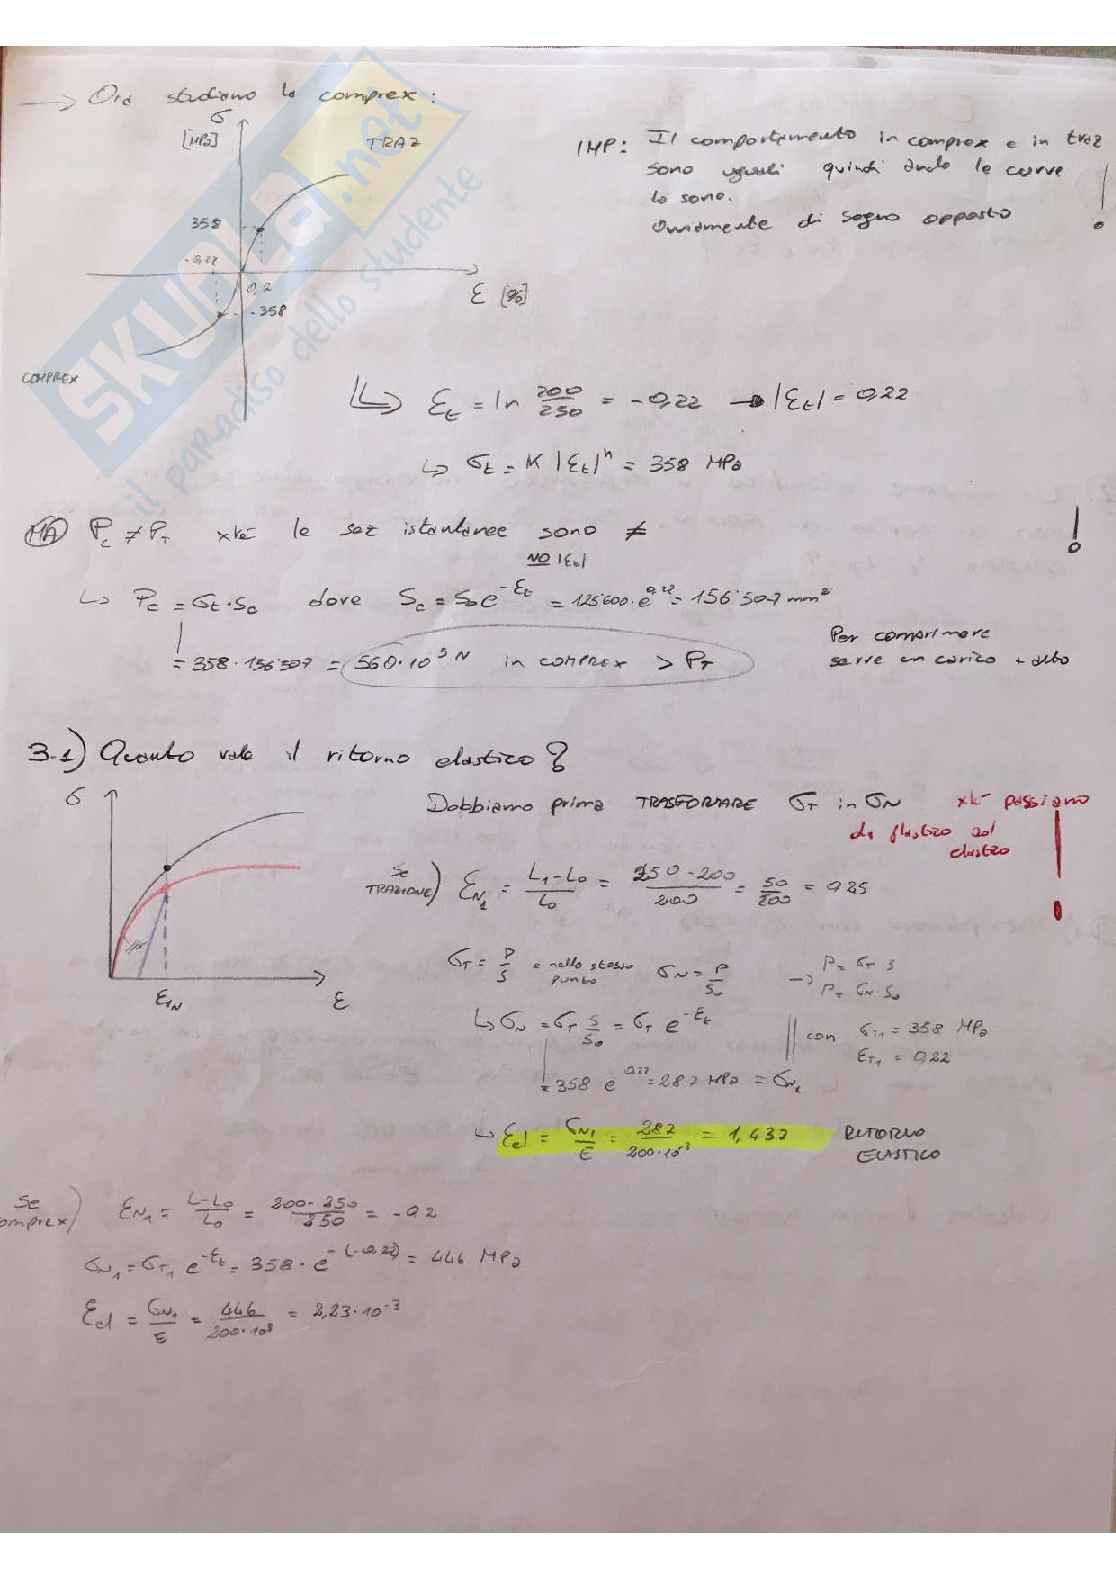 → Ora studiamo la comprex:
σ
[MPa]
TRAZ
358
-0,22
0,2
-358
ε [%]
COMPREX
IMP: Il comportamento in comprex e in traz
sono uguali quindi anche le curve
lo sono.
Ovviamente di segno opposto
!
SKUOLA.net
il paradiso dello studente
↳ εt = ln 200/250 = -0,22 → |εt| = 0,22
↳ σt = K |εt|ⁿ = 358 MPa
MA Pc ≠ PT xké le sez istantanee sono ≠
!
NO |εt|
↳ Pc = σt · Sc dove Sc = S0 e^-εt = 125'600 · e^0,22 = 156'507 mm²
= 358 · 156'507 = 560·10³ N in COMPREX > PT
Per comprimere
serve un carico + alto
3.1) Quanto vale il ritorno elastico?
σ
ε1N
ε
Dobbiamo prima TRASFORMARE σT in σN xké passiamo
da plastico ad
elastico
!
se TRAZIONE) εN1 = L1-L0/L0 = 250-200/200 = 50/200 = 0,25
σT = P/S e nello stesso punto σN = P/S0 → P = σT S
P = σN · S0
↳ σN = σT S/S0 = σT e^-εt || con σT1 = 358 MPa
εT1 = 0,22
= 358 e^0,22 = 287 MPa = σN1
↳ εel = σN1/E = 287/200·10³ = 1,437 RITORNO
ELASTICO
se comprex) εN1 = L-L0/L0 = 200-250/250 = -0,2
σN1 = σT1 e^-εt = 358 · e^-(-0,22) = 446 MPa
εel = σN1/E = 446/200·10³ = 2,23·10^-3